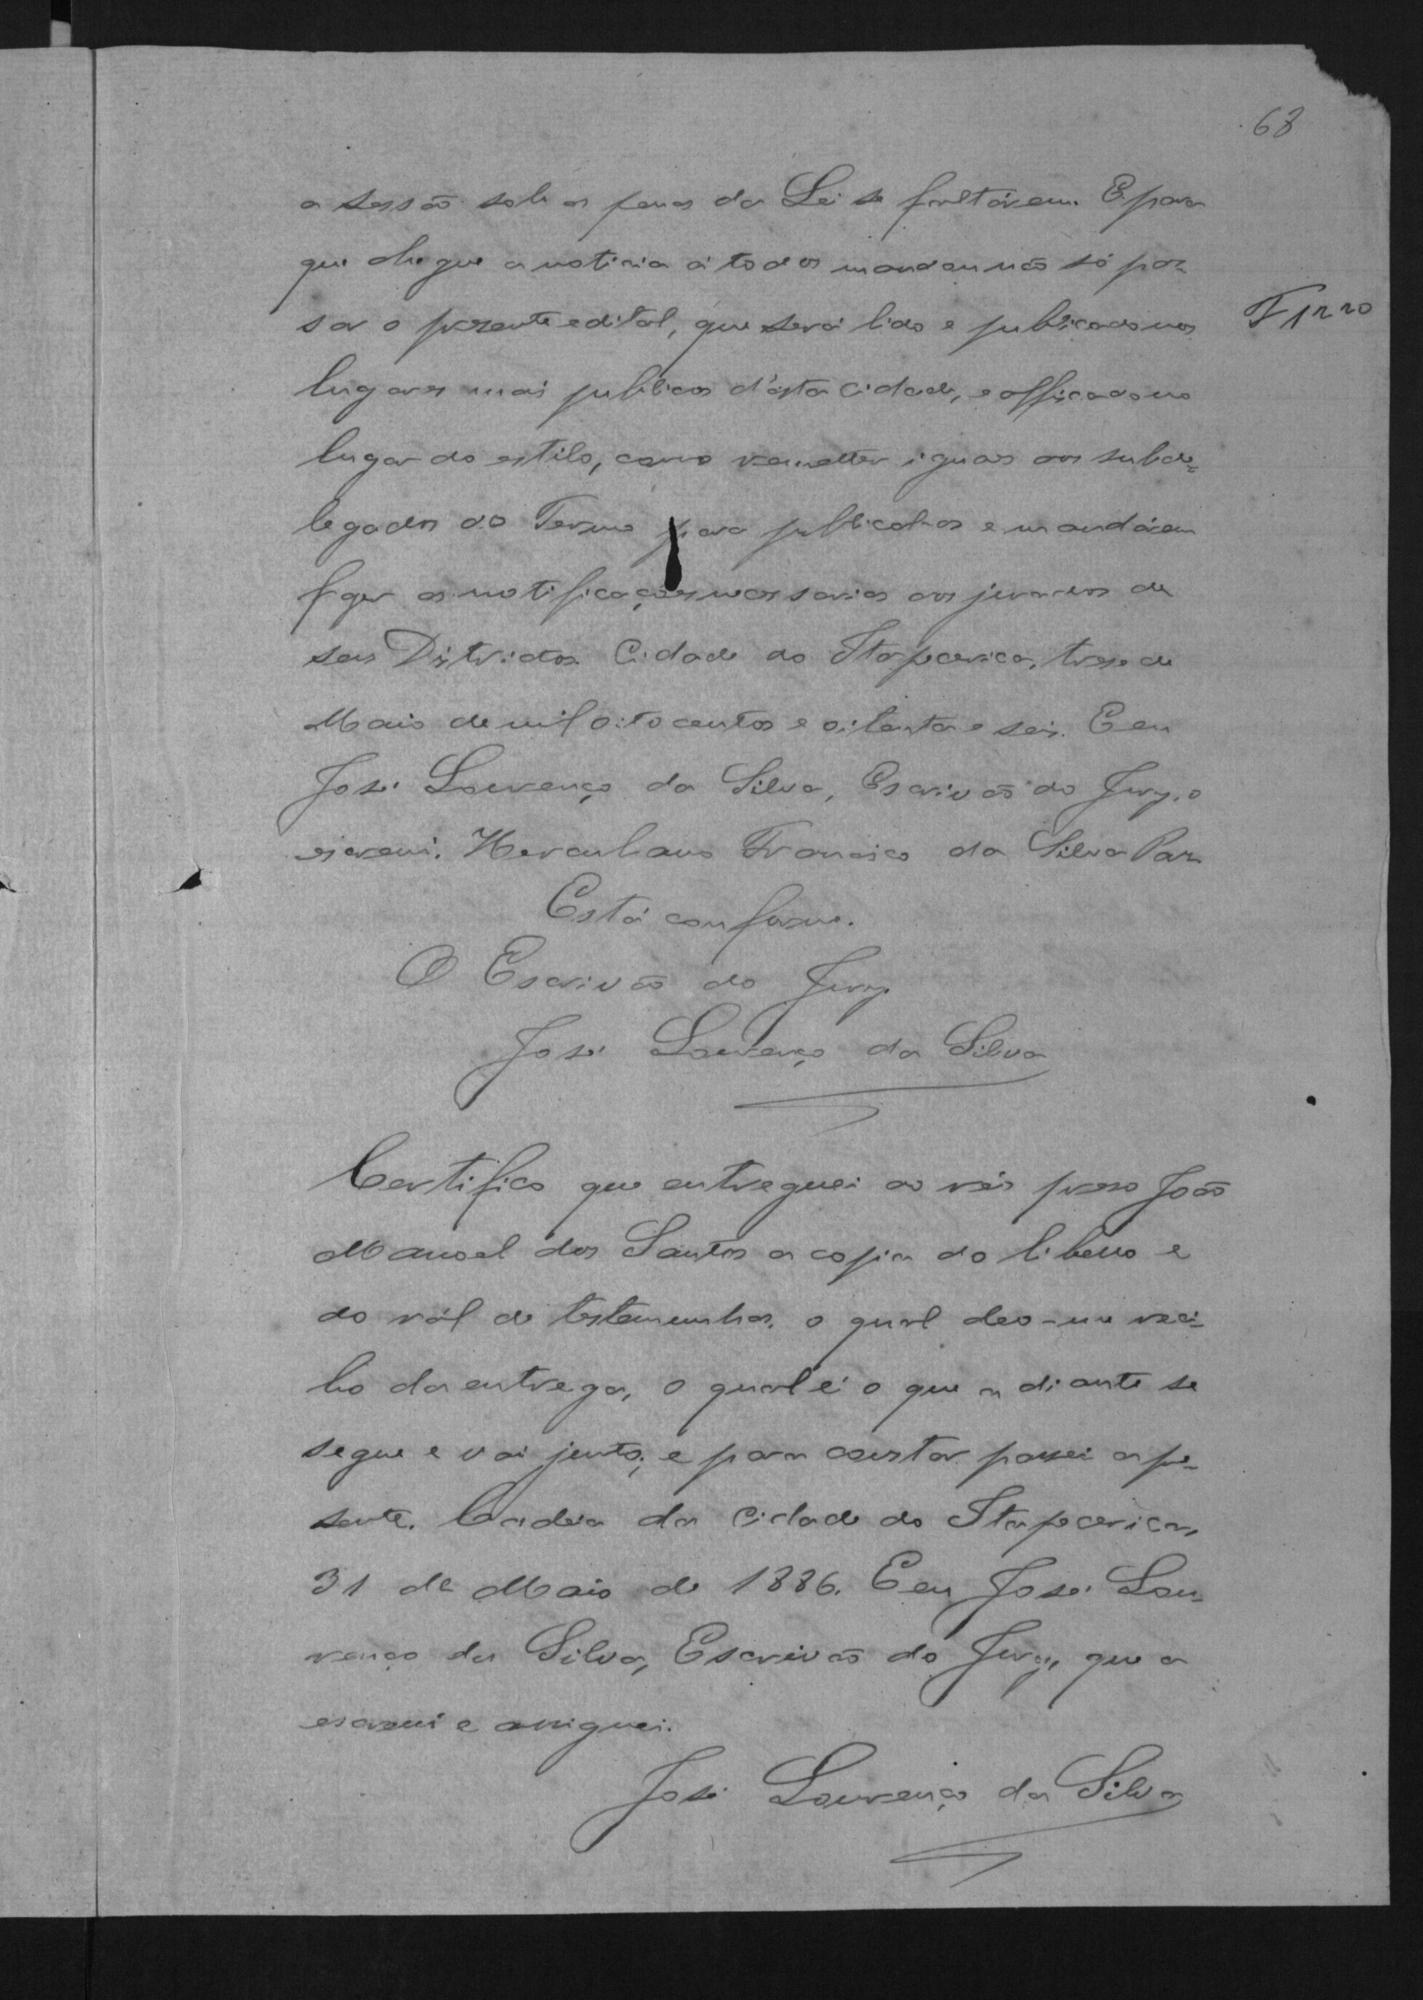 68
a sessão sob as penas da Lei se faltárem. E para
que chegue a noticia á todos mandou não só pas-
sar o presente edital, que será lido e publicado nos
lugares mais publicos d'esta Cidade, e affixado no
lugar do estilo, como remetter iguaes aos subde=
legados do Termo para publical-os e mandárem
fazer as notificações necessarias aos jurados de
seus Districtos. Cidade do Itapecerica, treze de
Maio de mil oito centos e oitenta e seis. E eu
José Lourenço da Silva, Escrivão do Jury, o
escrevi. Herculano Francisco da Silva Paz
Está conforme.
O Escrivão do Jury
José Lourenço da Silva
Certifico que entreguei ao réo preso João
Manoel dos Santos a copia do libello e
do ról de testemunhas, o qual deo-me reci-
bo da entrega, o qual é o que a diante se
segue e vai junto; e para constar passei a pre-
sente. Cadeia da Cidade do Itapecerica,
31 de Maio de 1886. E eu José Lou-
renço da Silva, Escrivão do Jury, que a
escrevi e assignei.
José Lourenço da Silva